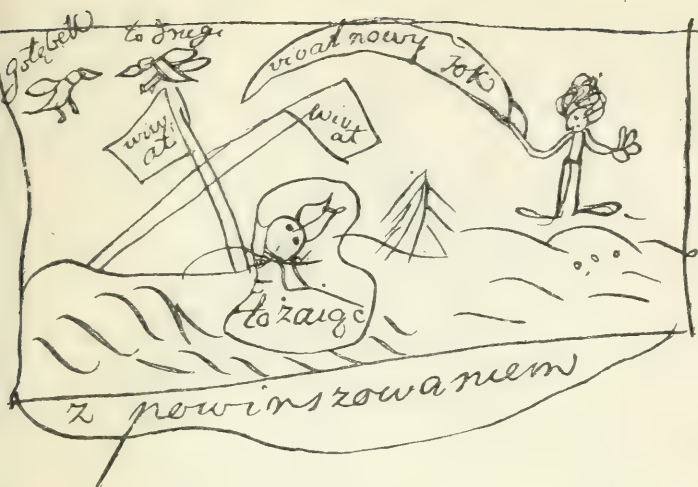 gołębek
to drugi
vivat nowy rok
wiw
at
wiw
at
to zaiąc
z powinszowaniem